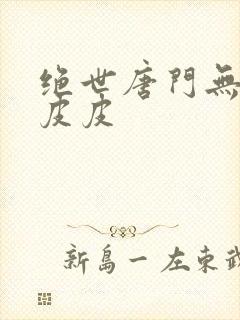 绝世唐門無
皮皮
新島一 左東武